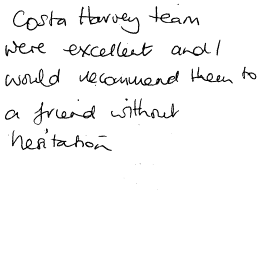 Costa Harvey team
were excellent and I
would recommend them to
a friend without
hesitation